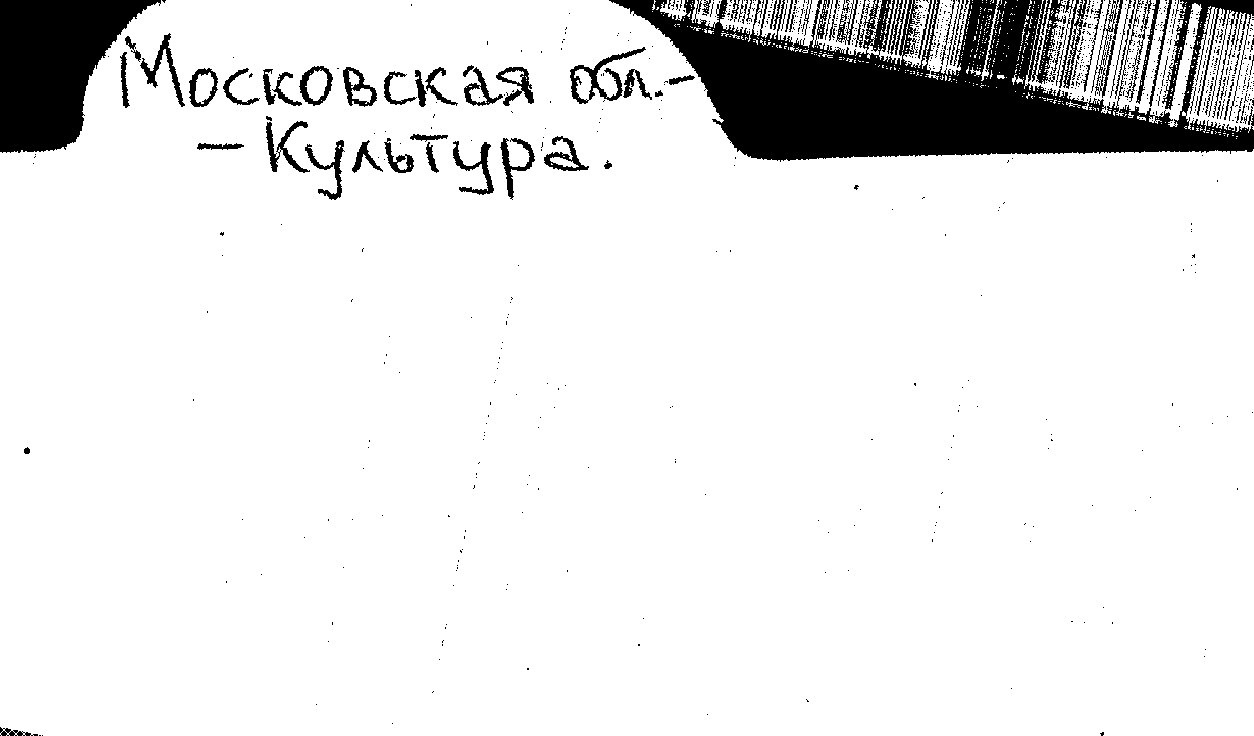 Московская обл.-
- Культура.